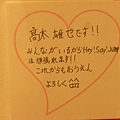 高木 雄也です!!
みんながいるからHey!Say!Jump
は頑張れます!!
これからもおうえん
よろしく